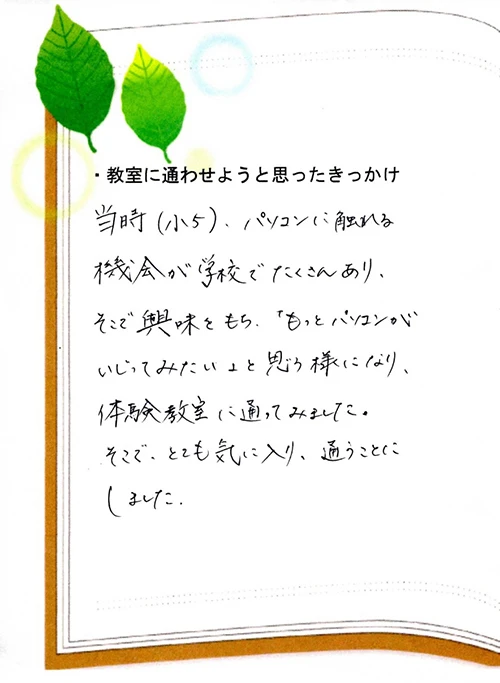 ・教室に通わせようと思ったきっかけ
当時(小5)、パソコンに触れる
機会が学校でたくさんあり、
そこで興味をもち、「もっとパソコンが
いじってみたい」と思う様になり、
体験教室に通ってみました。
そこで、とても気に入り、通うことに
しました.